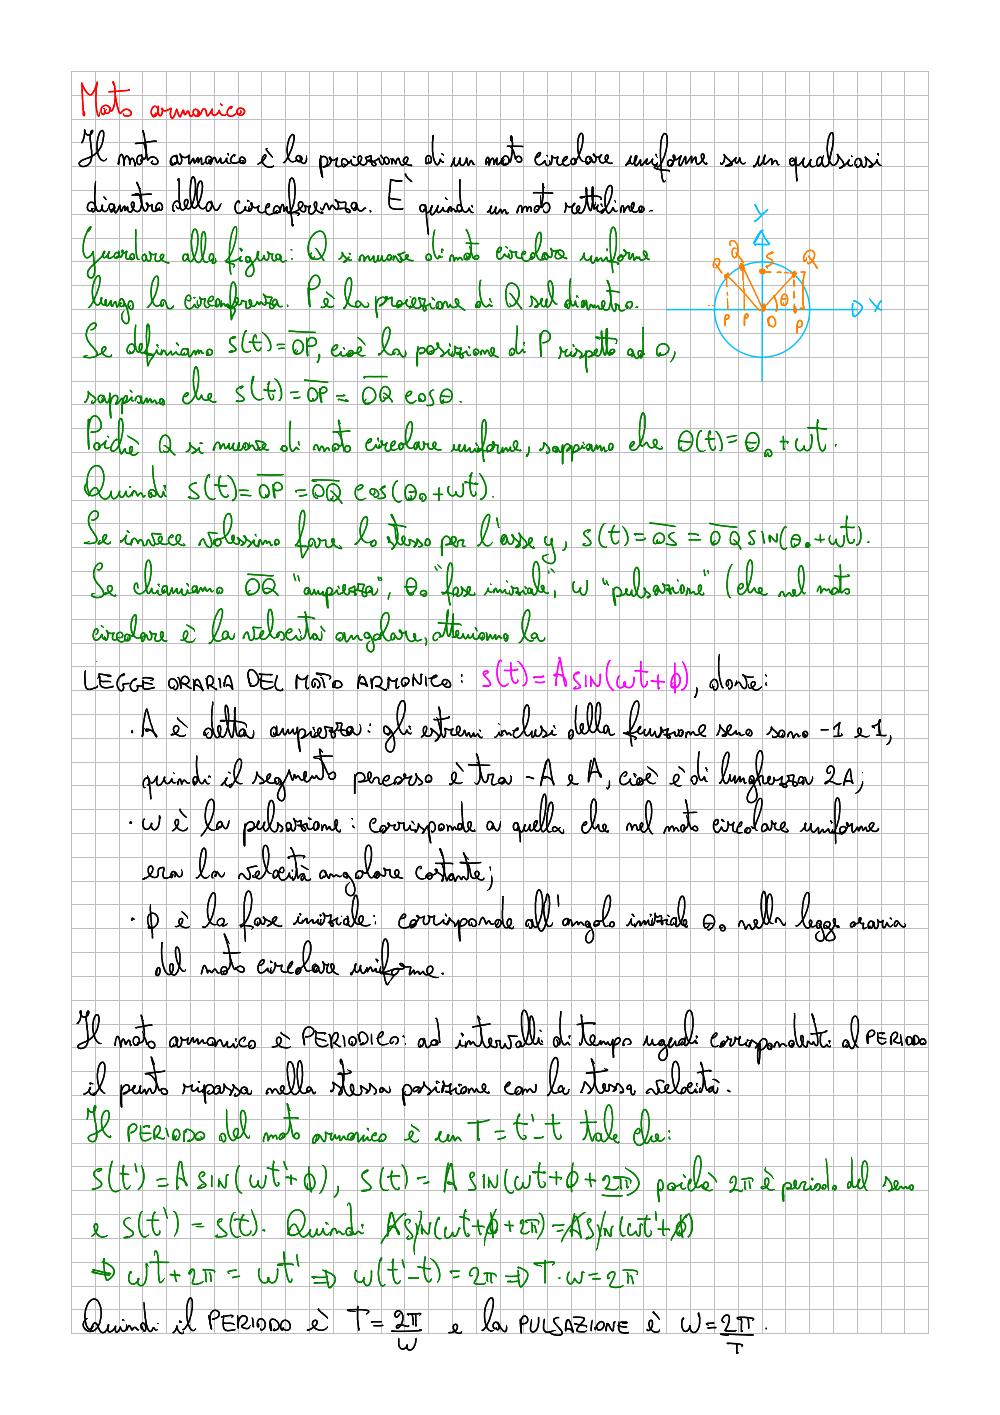 Moto armonico
Il moto armonico è la proiezione di un moto circolare uniforme su un qualsiasi
diametro della circonferenza. È quindi un moto rettilineo.
Guardare alla figura: Q si muove di moto circolare uniforme
lungo la circonferenza. P è la proiezione di Q sul diametro.
Se definiamo s(t)=O̅P̅, cioè la posizione di P rispetto ad O,
sappiamo che s(t)=O̅P̅ = O̅Q̅ cosθ.
y
Q Q S Q
θ
P P O P
x
Poichè Q si muove di moto circolare uniforme, sappiamo che θ(t)=θ₀+ωt.
Quindi s(t)=O̅P̅ =O̅Q̅ cos(θ₀+ωt).
Se invece volessimo fare lo stesso per l'asse y, s(t)=O̅S̅ = O̅Q̅ SIN(θ₀+ωt).
Se chiamiamo O̅Q̅ "ampiezza", θ₀ "fase iniziale", ω "pulsazione" (che nel moto
circolare è la velocità angolare, otteniamo la
LEGGE ORARIA DEL MOTO ARMONICO: s(t)=A SIN(ωt+ϕ), dove:
· A è detta ampiezza: gli estremi inclusi della funzione seno sono -1 e 1,
quindi il segmento percorso è tra -A e A, cioè è di lunghezza 2A;
· ω è la pulsazione: corrisponde a quella che nel moto circolare uniforme
era la velocità angolare costante;
· ϕ è la fase iniziale: corrisponde all'angolo iniziale θ₀ nella legge oraria
del moto circolare uniforme.
Il moto armonico è PERIODICO: ad intervalli di tempo uguali corrispondenti al PERIODO
il punto ripassa nella stessa posizione con la stessa velocità.
Il PERIODO del moto armonico è un T=t'-t tale che:
s(t')=A SIN(ωt'+ϕ), s(t) = A SIN(ωt+ϕ+2π) poichè 2π è periodo del seno
e s(t') = s(t). Quindi A SIN(ωt+ϕ+2π)=A SIN(ωt'+ϕ)
⇒ ωt+2π = ωt' ⇒ ω(t'-t)=2π ⇒ T·ω=2π
Quindi il PERIODO è T=2π/ω e la PULSAZIONE è ω=2π/T.